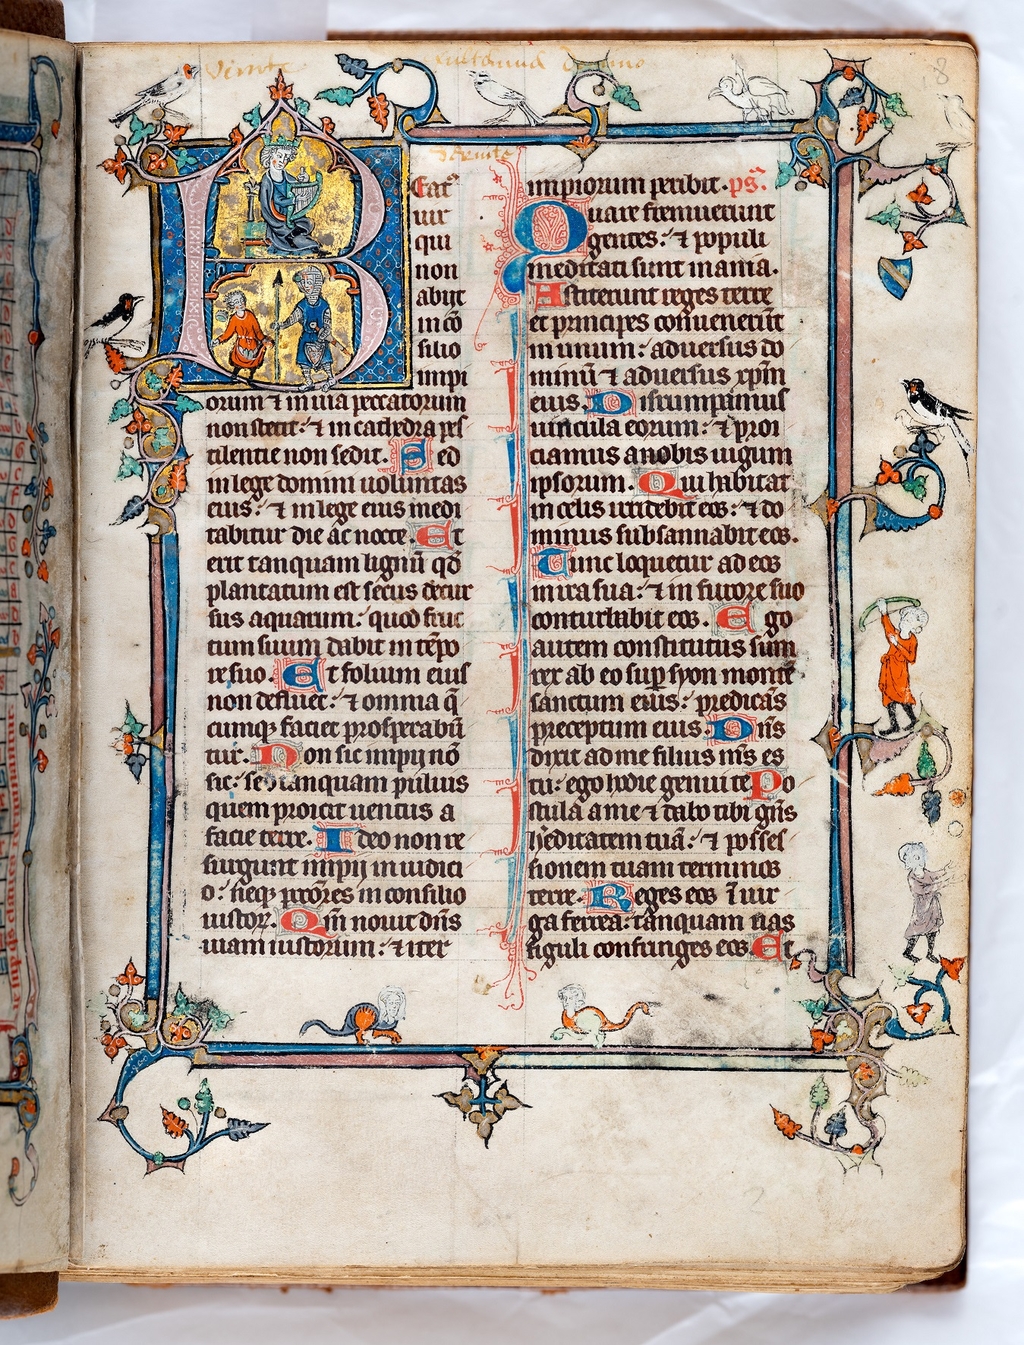 Venite
Beatꝰ
uir
qui
non
abijt
in cō
silio
impi
orum ⁊ in uia peccatorum
non stetit: ⁊ in cathedra pes
tilentie non sedit. Sed
in lege domini uoluntas
eius: ⁊ in lege eius medi
tabitur die ac nocte. Et
erit tanquam lignū qd̄
plantatum est secus decur
sus aquarum: quod fruc
tum suum dabit in tēpo
re suo. Et folium eius
non defluet: ⁊ omnia q̄
cumqꝫ faciet prosperabū
tur. Non sic impij nō
sic: sed tanquam puluis
quem proicit uentus a
facie terre. Ideo non re
surgunt impij in iudici
o: neqꝫ pctōres in consilio
iustoꝝ. Qm̄ nouit dn̄s
uiam iustorum: ⁊ iter
impiorum peribit. ps̄.
Quare fremuerunt
gentes: ⁊ populi
meditati sunt inania.
Astiterunt reges terre
et principes conuenerūt
in unum: aduersus do
minū ⁊ aduersus xpm̄
eius. Disrumpamus
uincula eorum: ⁊ proi
ciamus a nobis iugum
ipsorum. Qui habitat
in celis irridebit eos: ⁊ do
minus subsannabit eos.
Tunc loquetur ad eos
in ira sua: ⁊ in furore suo
conturbabit eos. Ego
autem constitutus sum
rex ab eo suꝑ syon monte
sanctum eius: predicās
preceptum eius. Dn̄s
dixit ad me filius m̄s es
tu: ego hodie genui te Po
stula a me ⁊ dabo tibi gn̄s
h̄editatem tuā: ⁊ posses
sionem tuam terminos
terre. Reges eos ī uir
ga ferrea: tanquam uas
figuli confringes eos. Et